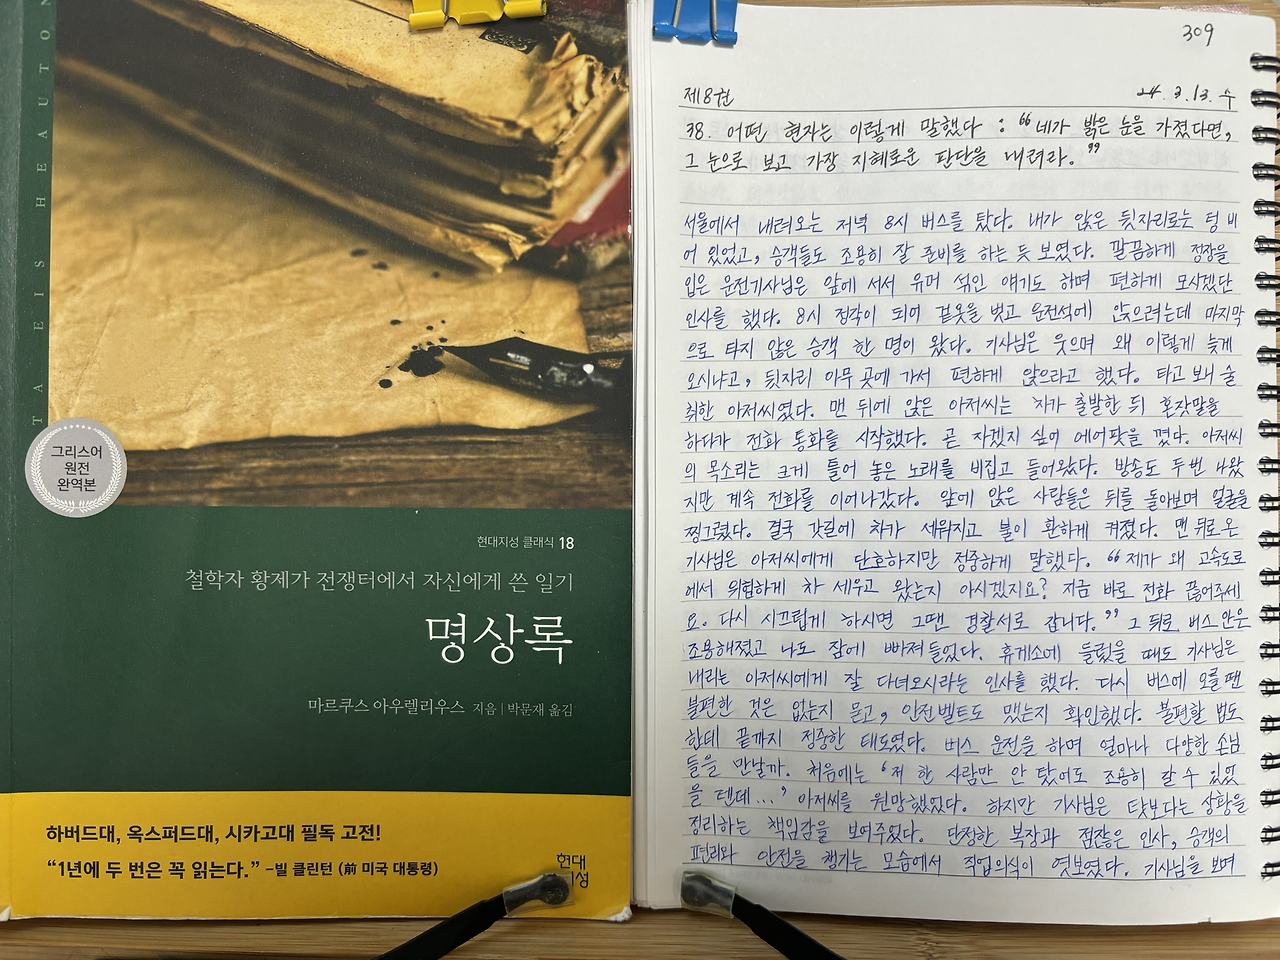 TA EIS HEAUTON
그리스어
원전
완역본
현대지성 클래식 18
철학자 황제가 전쟁터에서 자신에게 쓴 일기
명상록
마르쿠스 아우렐리우스 지음 | 박문재 옮김
하버드대, 옥스퍼드대, 시카고대 필독 고전!
“1년에 두 번은 꼭 읽는다.” –빌 클린턴 (前 미국 대통령)
현대
지성
309
제8권 24. 3. 13. 수
38. 어떤 현자는 이렇게 말했다 : “네가 밝은 눈을 가졌다면,
그 눈으로 보고 가장 지혜로운 판단을 내려라.”
서울에서 내려오는 저녁 8시 버스를 탔다. 내가 앉은 뒷자리로는 텅 비
어 있었고, 승객들도 조용히 잘 준비를 하는 듯 보였다. 깔끔하게 정장을
입은 운전기사님은 앞에 서서 유머 섞인 얘기도 하며 편하게 모시겠단
인사를 했다. 8시 정각이 되어 겉옷을 벗고 운전석에 앉으려는데 마지막
으로 타지 않은 승객 한 명이 왔다. 기사님은 웃으며 왜 이렇게 늦게
오시냐고, 뒷자리 아무 곳에 가서 편하게 앉으라고 했다. 타고 보니 술
취한 아저씨였다. 맨 뒤에 앉은 아저씨는 차가 출발한 뒤 혼잣말을
하다가 전화 통화를 시작했다. 곧 자겠지 싶어 에어팟을 꼈다. 아저씨
의 목소리는 크게 틀어 놓은 노래를 비집고 들어왔다. 방송도 두번 나왔
지만 계속 전화를 이어나갔다. 앞에 앉은 사람들은 뒤를 돌아보며 얼굴을
찡그렸다. 결국 갓길에 차가 세워지고 불이 환하게 켜졌다. 맨 뒤로 온
기사님은 아저씨에게 단호하지만 정중하게 말했다. “제가 왜 고속도로
에서 위험하게 차 세우고 왔는지 아시겠지요? 지금 바로 전화 끊어주세
요. 다시 시끄럽게 하시면 그땐 경찰서로 갑니다.” 그 뒤로 버스 안은
조용해졌고 나도 잠에 빠져들었다. 휴게소에 들렀을 때도 기사님은
내리는 아저씨에게 잘 다녀오시라는 인사를 했다. 다시 버스에 오를 땐
불편한 것은 없는지 묻고, 안전벨트도 맸는지 확인했다. 불편할 법도
한데 끝까지 정중한 태도였다. 버스 운전을 하며 얼마나 다양한 손님
들을 만날까. 처음에는 ‘저 한 사람만 안 탔어도 조용히 갈 수 있었
을 텐데...’ 아저씨를 원망했었다. 하지만 기사님은 탓보다는 상황을
정리하는 책임감을 보여주었다. 단정한 복장과 점잖은 인사, 승객의
편리와 안전을 챙기는 모습에서 직업의식이 엿보였다. 기사님을 보며